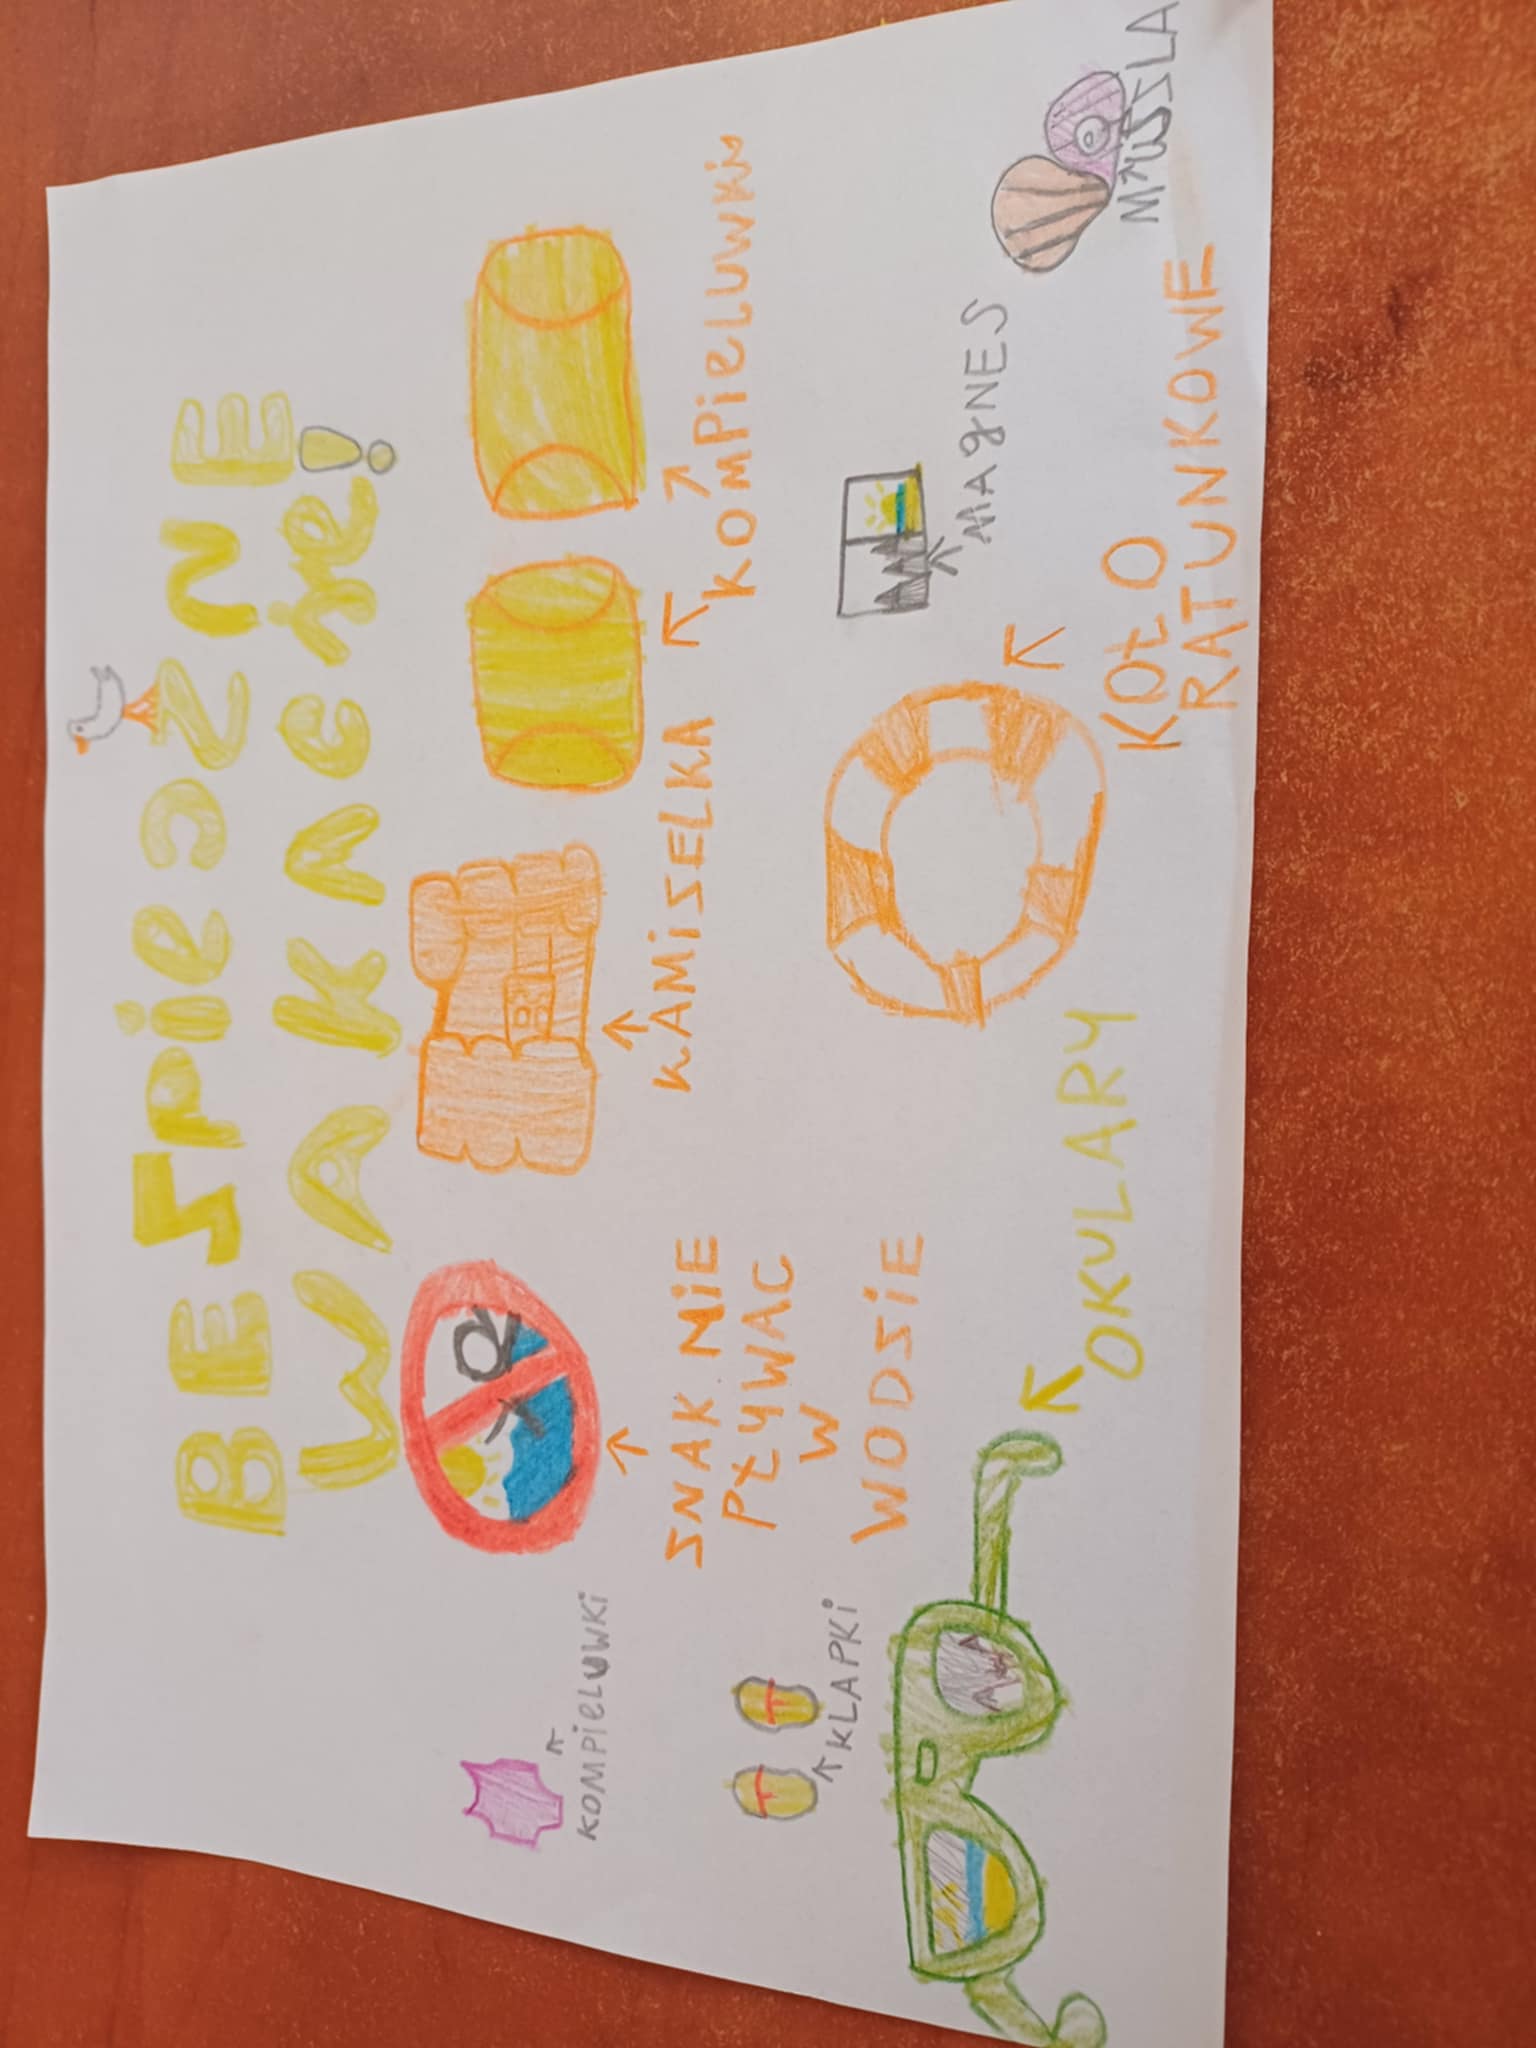 BESPiEDZNE
WAKAcJe!
KOMPiELUWKi
SNAK NiE
PŁYWAC
W
WODSiE
KAMiSELKA
KOMPiELUWKi
KLAPKi
OKULARY
KOŁO
RATUNKOWE
MAgNES
MUSZLA